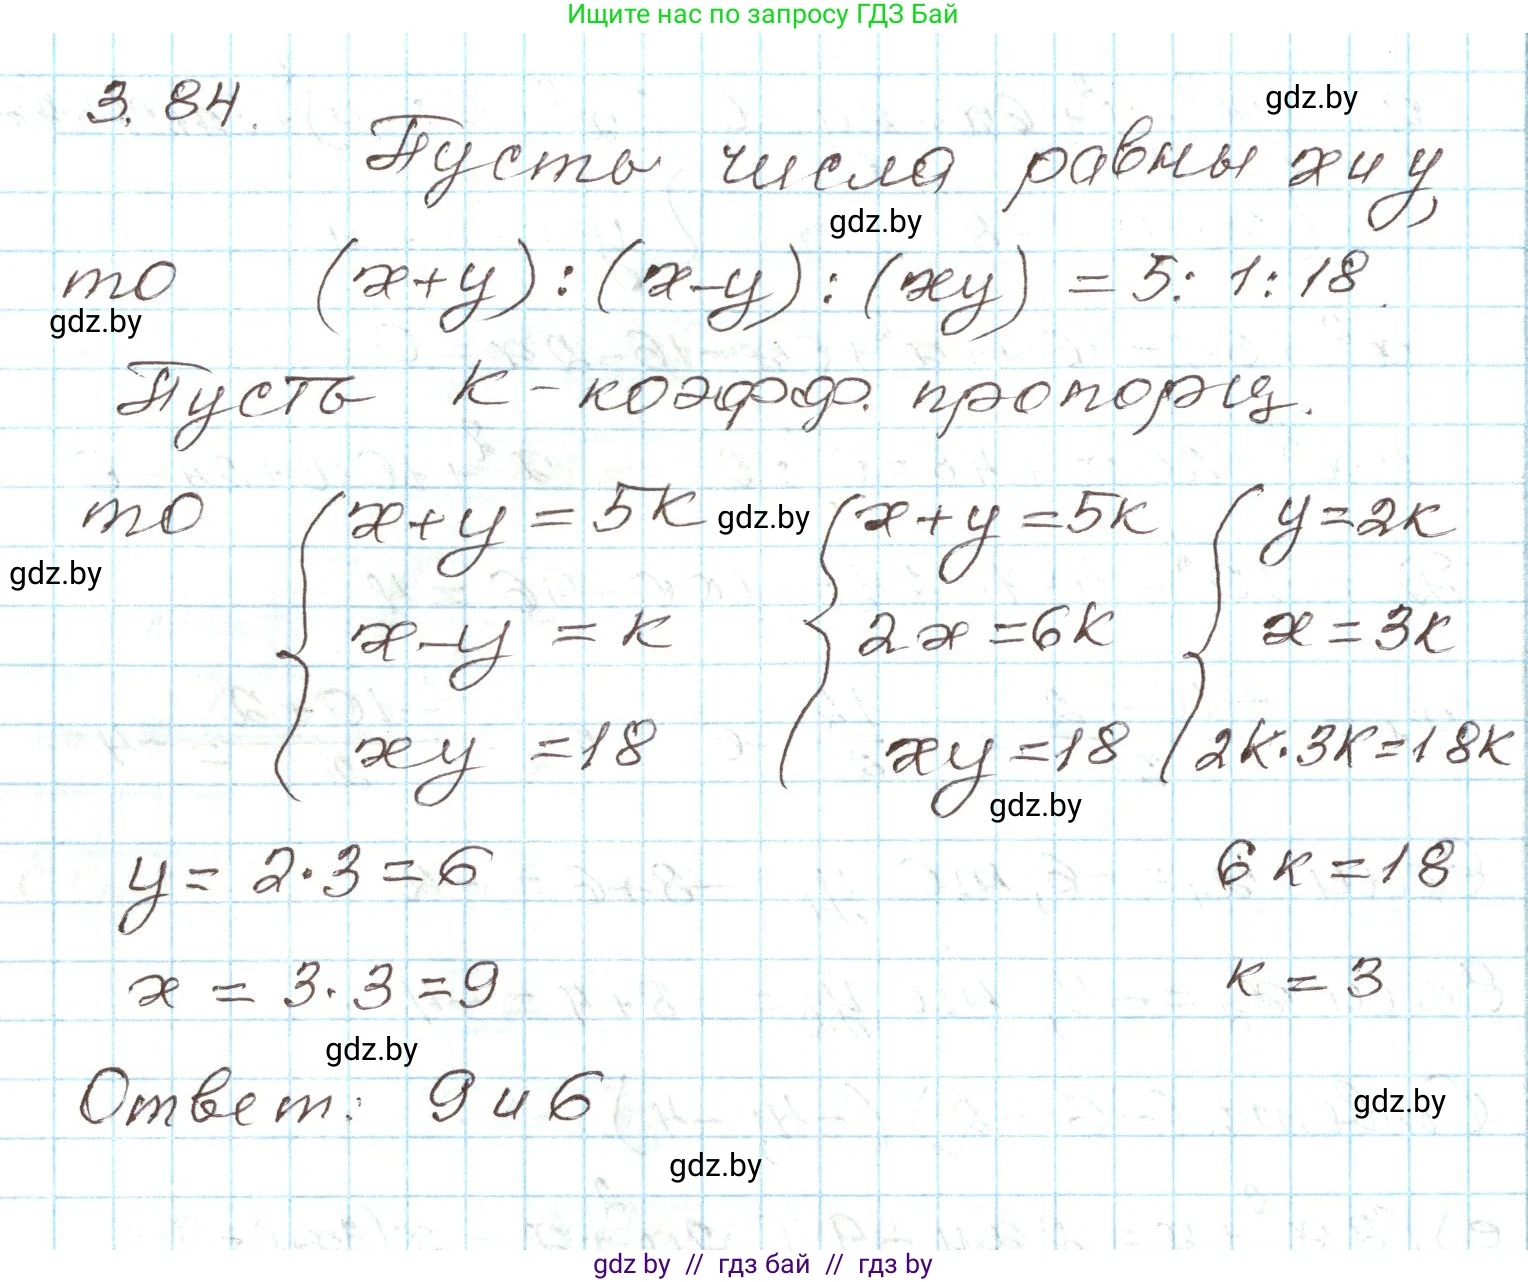 Ищите нас по запросу ГДЗ Бай
3.84.
gdz.by
Пусть числа равны x и y,
gdz.by
то (x+y) : (x-y) : (xy) = 5 : 1 : 18.
gdz.by
Пусть k - коэфф. пропорц.
то { x+y = 5k gdz.by { x+y = 5k { y = 2k
gdz.by
x-y = k 2x = 6k x = 3k
xy = 18 xy = 18 2k·3k = 18k
gdz.by
y = 2·3 = 6 6k = 18
x = 3·3 = 9 k = 3
gdz.by
Ответ: 9 и 6
gdz.by
gdz.by
gdz.by // гдз бай // гдз by